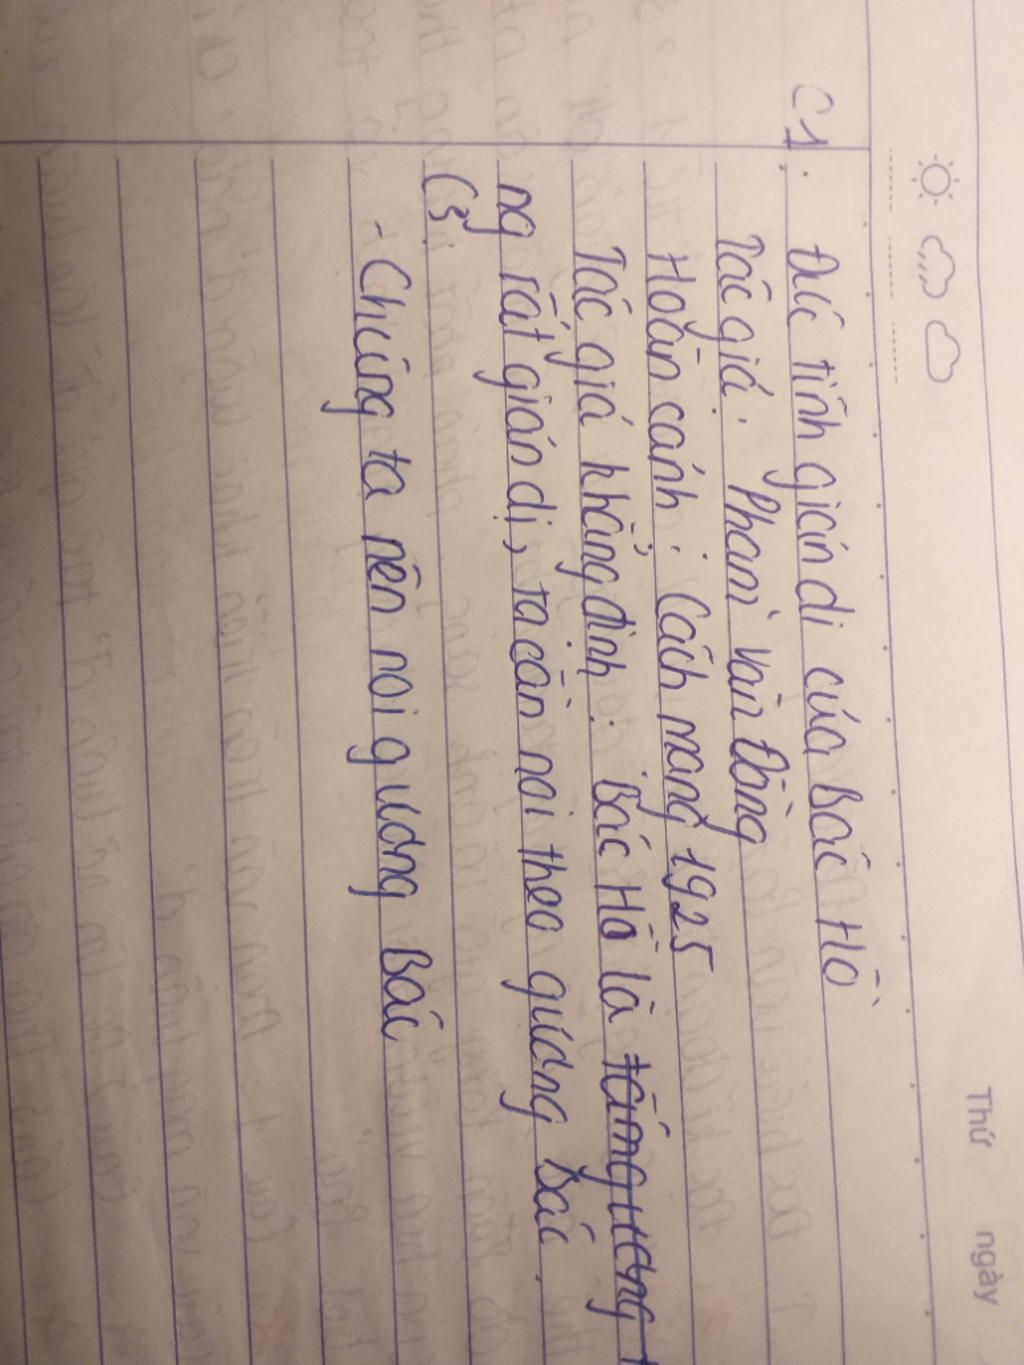 Thứ ngày
C1: Đức tính giản dị của Bác Hồ
Tác giả: Phạm Văn Đồng
Hoàn cảnh: Cách mạng 1925
Tác giả khẳng định: Bác Hồ là tấm gương
ng rất giản dị, ta cần noi theo gương Bác.
C3:
- Chúng ta nên noi gương Bác